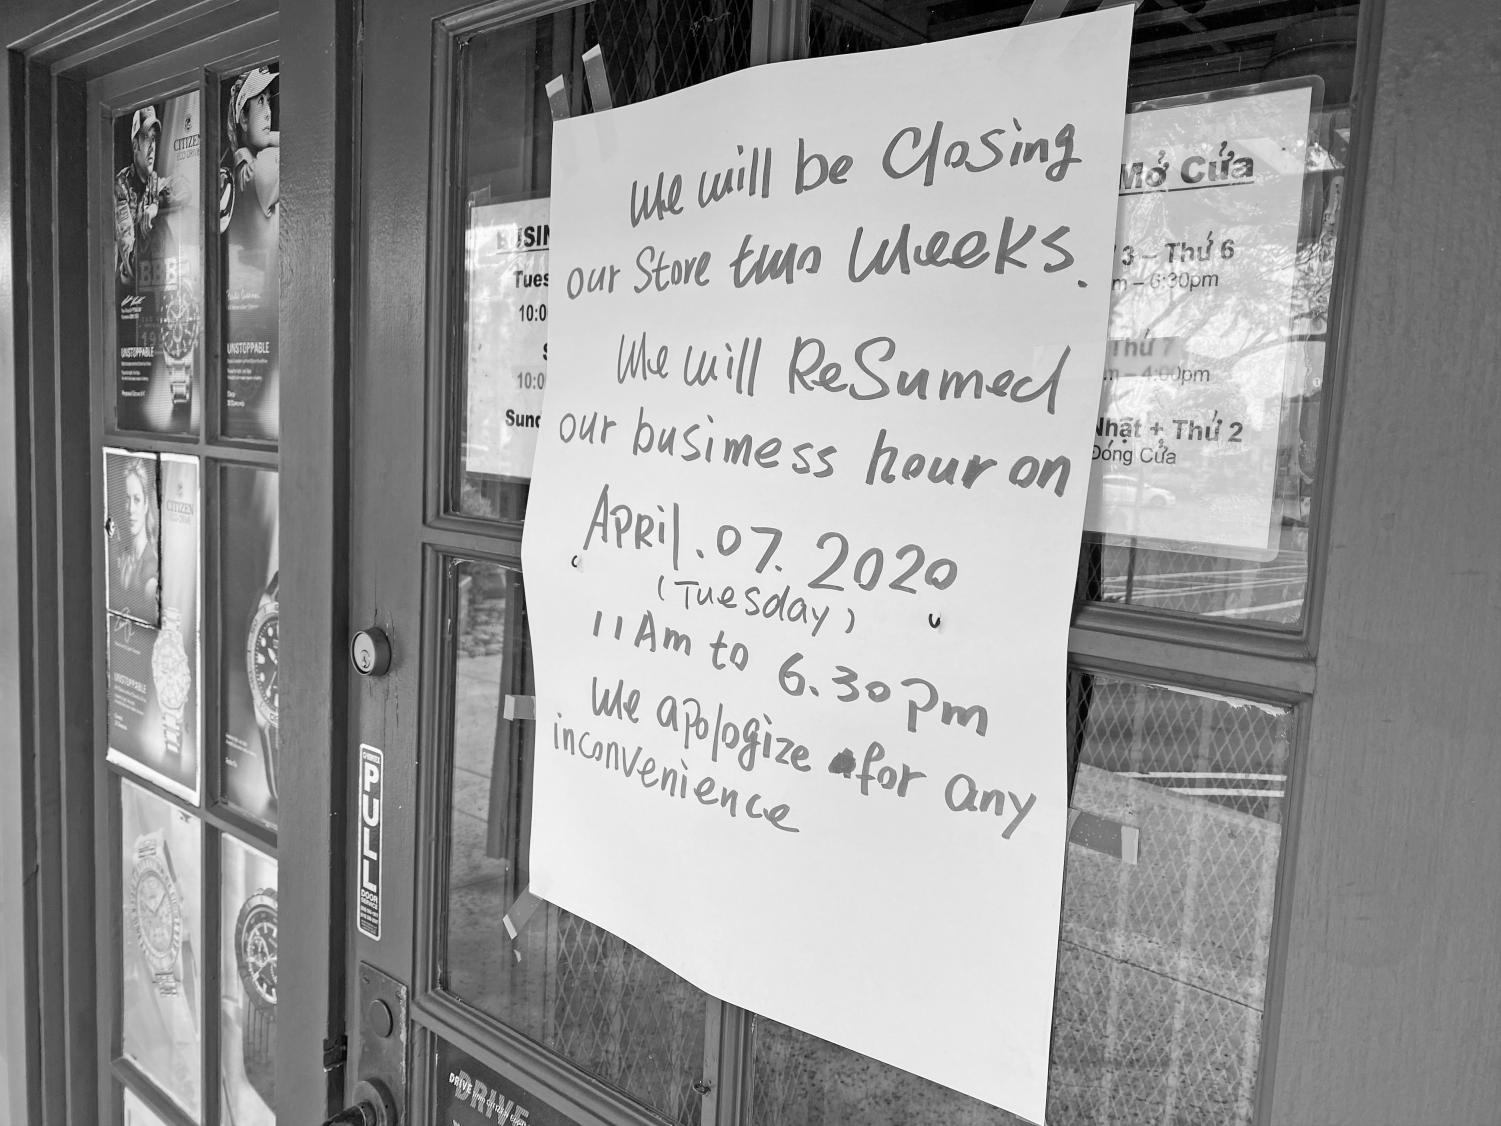 We will be Closing
our Store two Weeks.
We will ReSumed
our business hour on
APRil.07.2020
(Tuesday)
11 Am to 6.30 Pm
We apologize for any
inconvenience
BUSIN
Tues
10:0
S
10:0
Sund
Mở Cửa
3 – Thứ 6
m – 6:30pm
Thứ 7
m – 4:00pm
Nhật + Thứ 2
Đóng Cửa
CITIZEN
ECO-DRIVE
BBB
UNSTOPPABLE
UNSTOPPABLE
CITIZEN
UNSTOPPABLE
PULL
DOOR
SERVICE
DRIVE
DRIVE